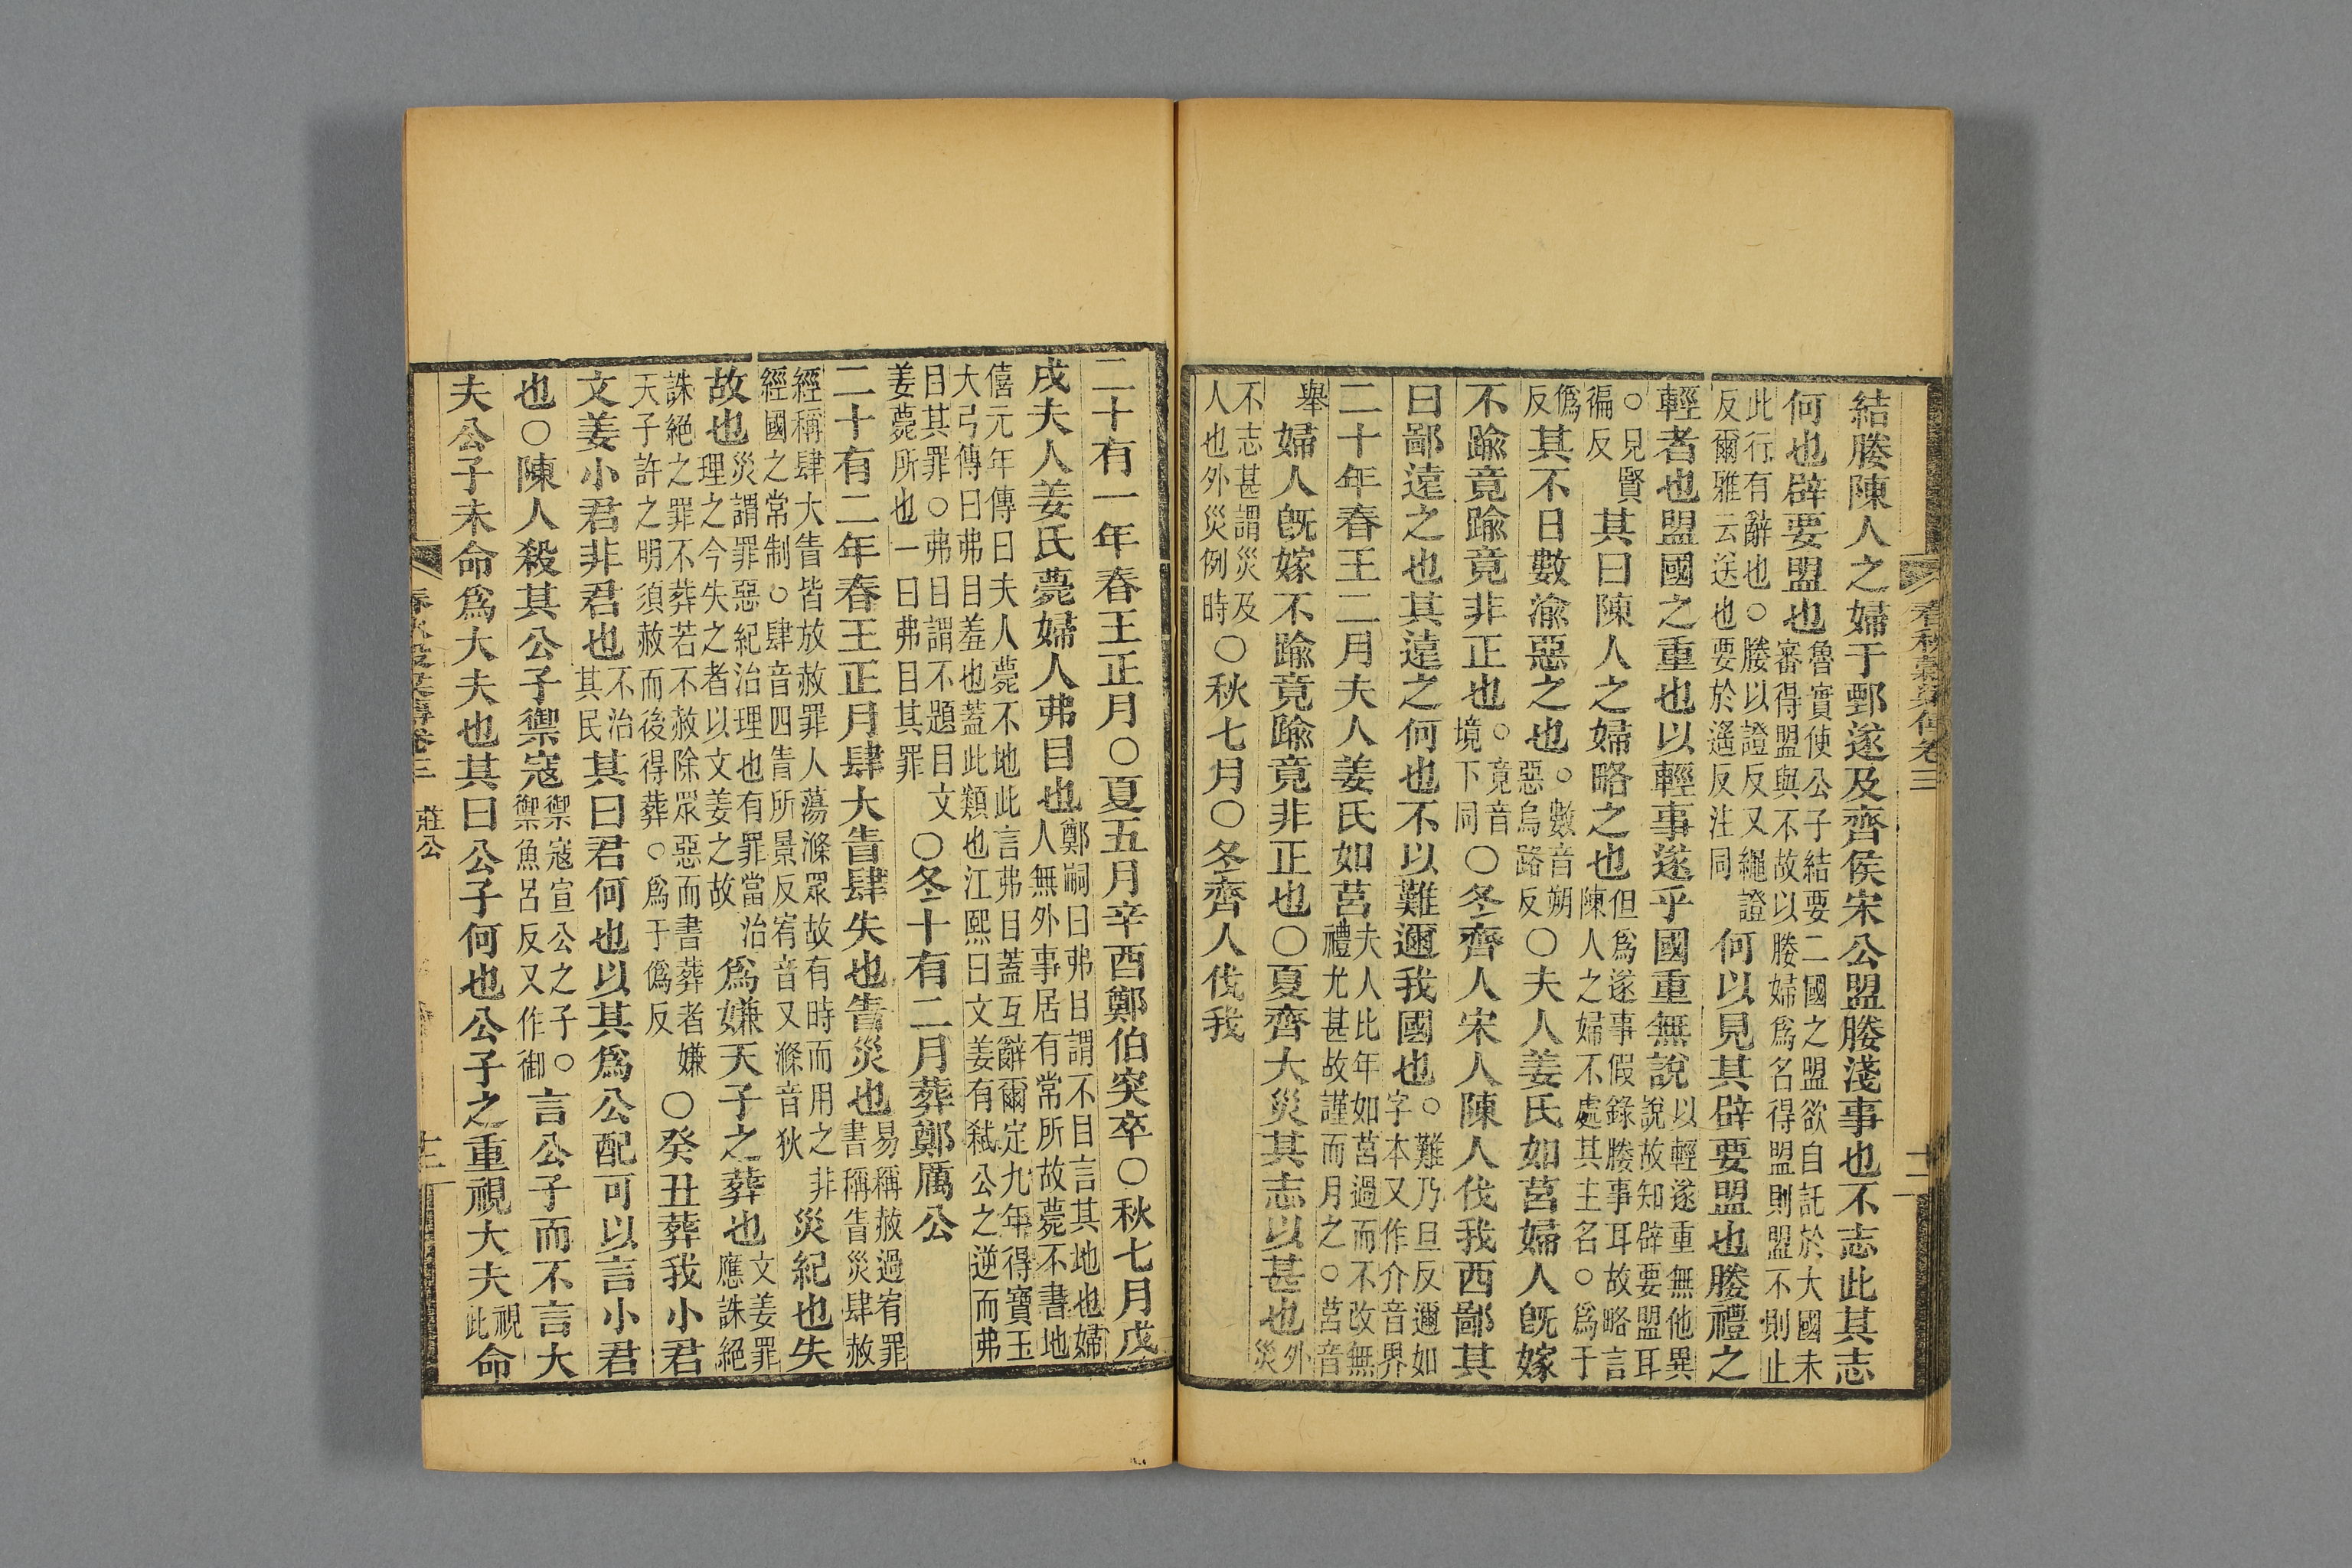 春秋穀梁傳卷三 十二
結媵陳人之婦于鄄遂及齊侯宋公盟媵淺事也不志此其志
何也辟要盟也魯實使公子結要二國之盟欲自託於大國未審得盟與不故以媵婦爲名得盟則盟不則止
此行有辭也○媵以證反又繩證反爾雅云送也要於遙反注同何以見其辟要盟也媵禮之
輕者也盟國之重也以輕事遂乎國重無說以輕遂重無他異說故知辟要盟耳
○見賢徧反其曰陳人之婦略之也但爲遂事假錄媵事耳故略言陳人之婦不處其主名○爲于
僞反其不日數渝惡之也○數音朔惡烏路反○夫人姜氏如莒婦人旣嫁
不踰竟踰竟非正也○竟音境下同○冬齊人宋人陳人伐我西鄙其
曰鄙遠之也其遠之何也不以難邇我國也○難乃旦反邇如字本又作介音界
二十年春王二月夫人姜氏如莒夫人比年如莒過而不改無禮尤甚故謹而月之○莒音
舉婦人旣嫁不踰竟踰竟非正也○夏齊大災其志以甚也外災
不志甚謂災及人也外災例時○秋七月○冬齊人伐我
二十有一年春王正月○夏五月辛酉鄭伯突卒○秋七月戊
戌夫人姜氏薨婦人弗目也鄭嗣曰弗目謂不目言其地也婦人無外事居有常所故薨不書地
僖元年傳曰夫人薨不地此言弗目蓋互辭爾定九年得寶玉大弓傳曰弗目羞也蓋此類也江熙曰文姜有弒公之逆而弗
目其罪○弗目謂不題目文姜薨所也一曰弗目其罪○冬十有二月葬鄭厲公
二十有二年春王正月肆大眚肆失也眚災也易稱赦過宥罪書稱眚災肆赦
經稱肆大眚皆放赦罪人蕩滌眾故有時而用之非經國之常制○肆音四眚所景反宥音又滌音狄災紀也失
故也災謂罪惡紀治理也有罪當治理之今失之者以文姜之故爲嫌天子之葬也文姜罪應誅絕
誅絕之罪不葬若不赦除眾惡而書葬者嫌天子許之明須赦而後得葬○爲于僞反○癸丑葬我小君
文姜小君非君也不治其民其曰君何也以其爲公配可以言小君
也○陳人殺其公子禦寇禦寇宣公之子○禦魚呂反又作御言公子而不言大
夫公子未命爲大夫也其曰公子何也公子之重視大夫視此命
春秋穀梁傳卷三 莊公 十二